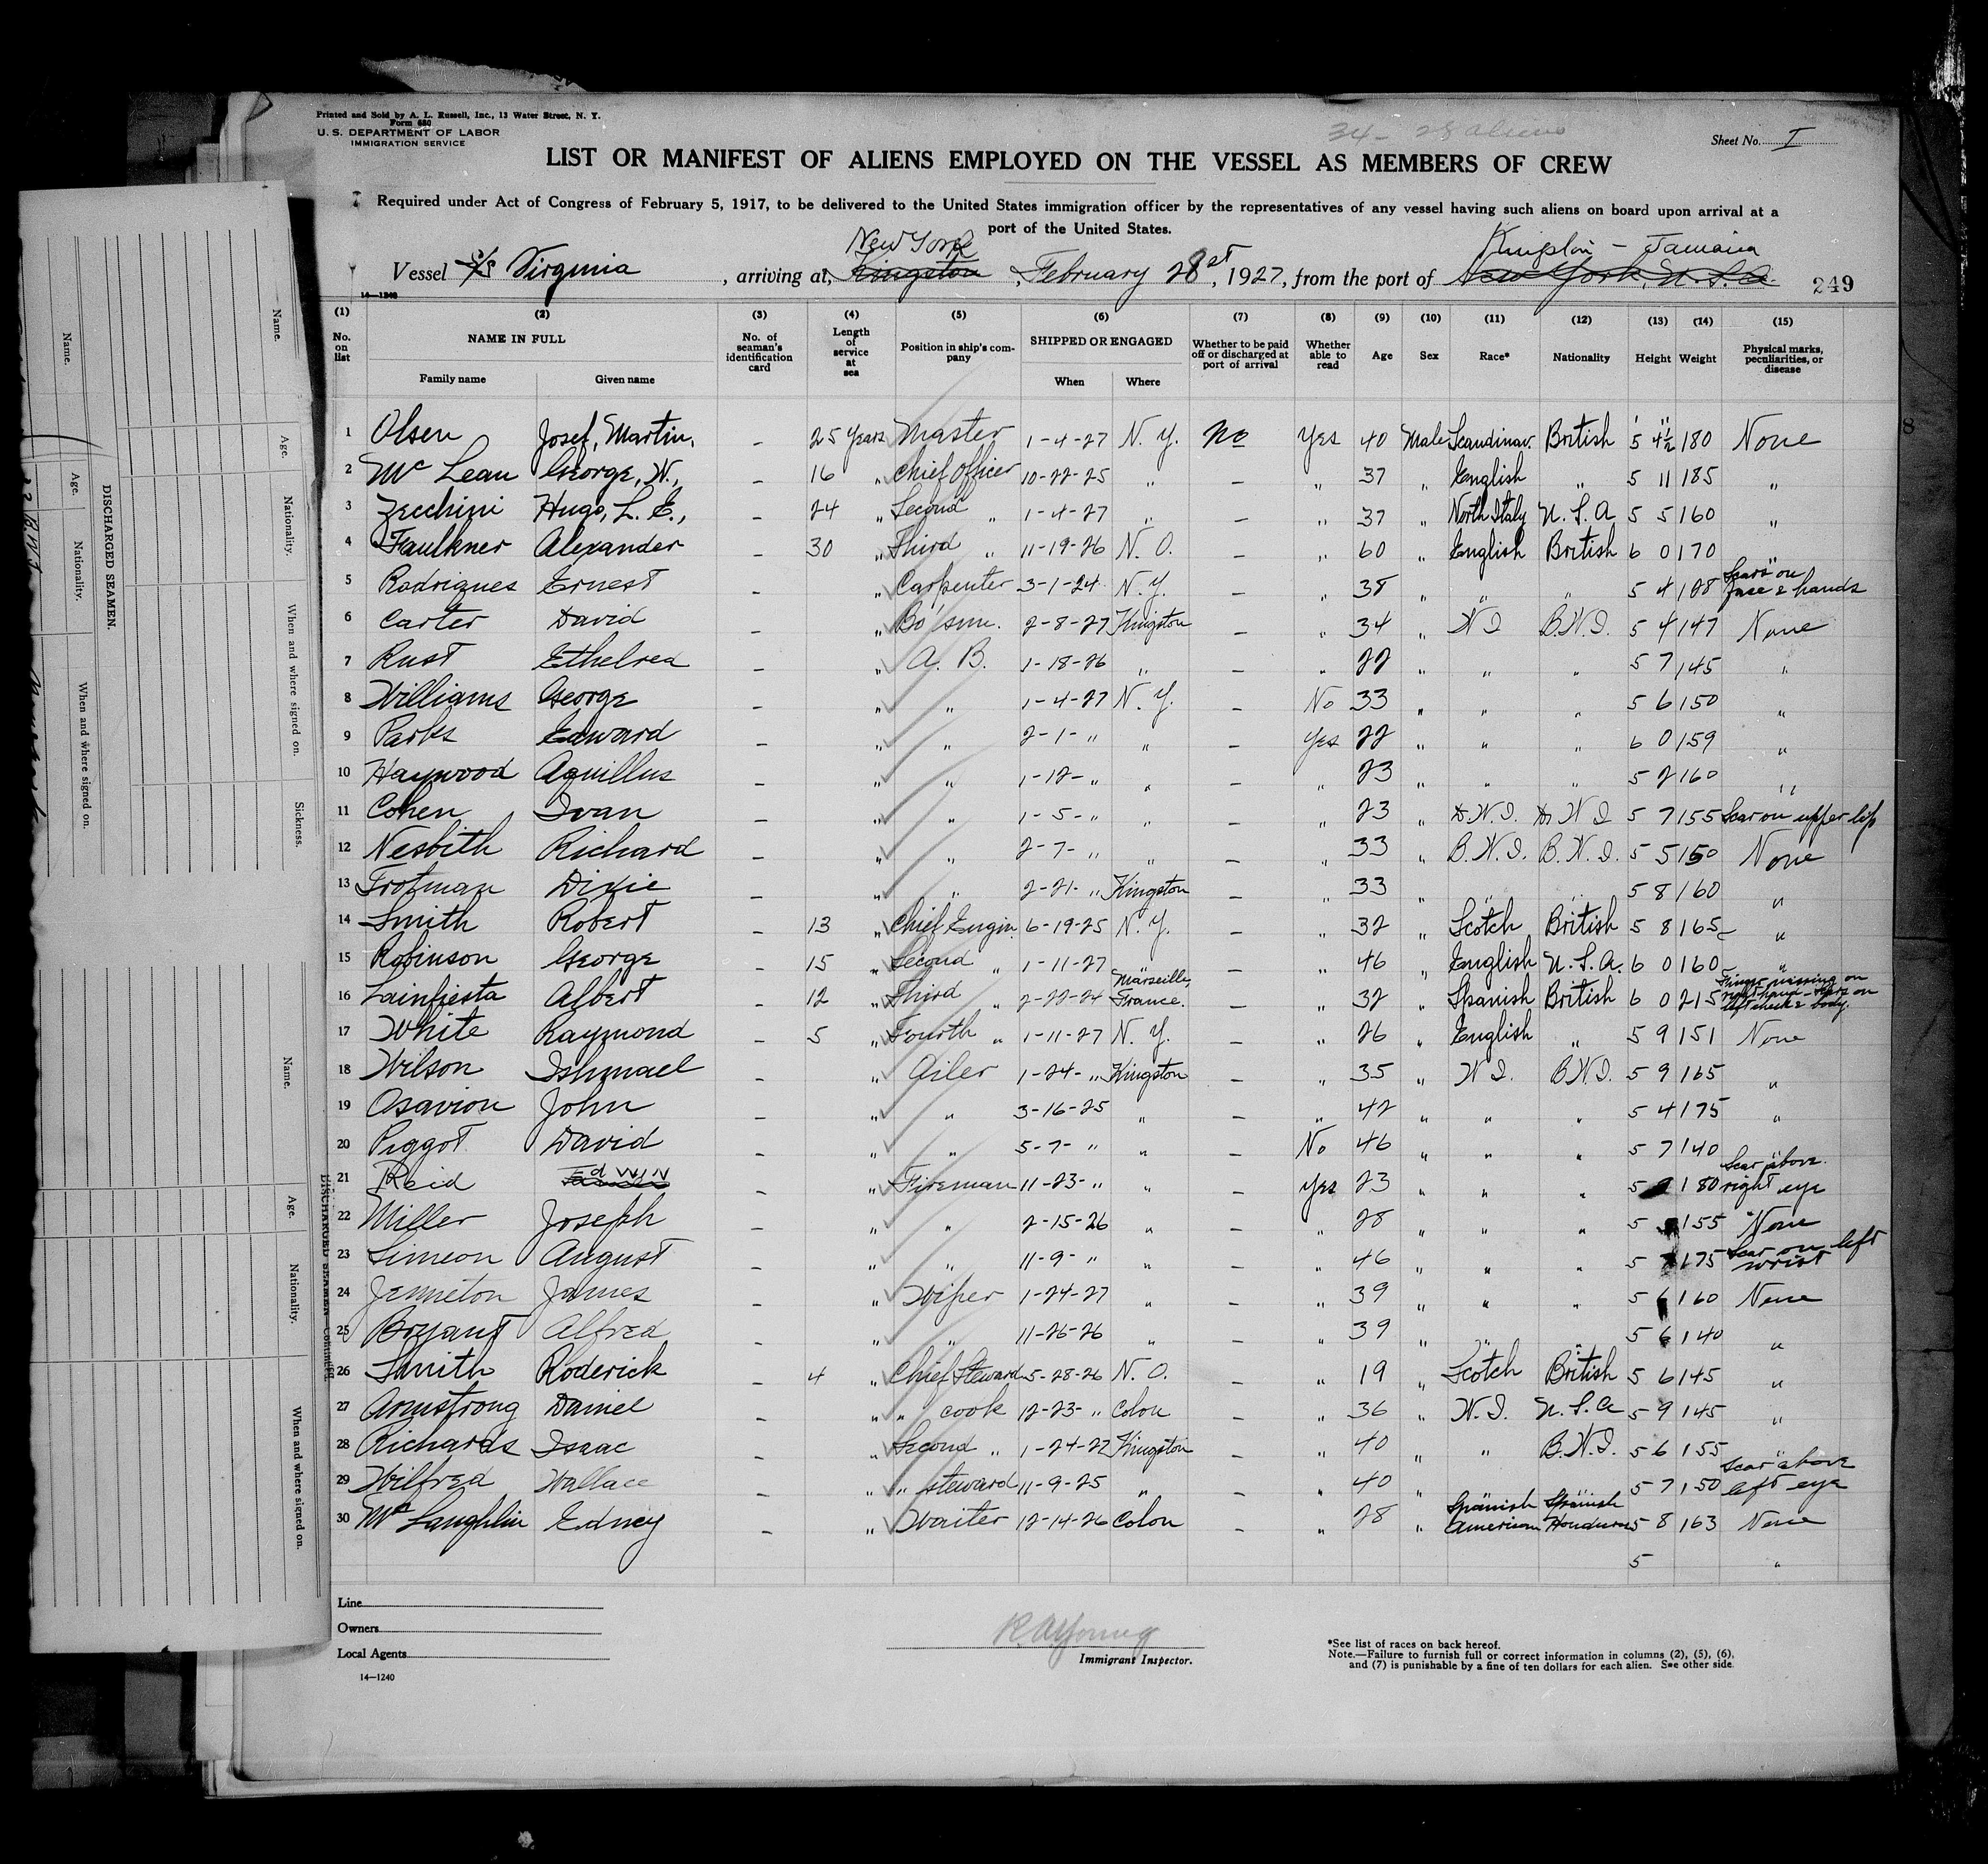 Printed and Sold by A. L. Russell, Inc., 13 Water Street, N. Y.
Form 680
U. S. DEPARTMENT OF LABOR
IMMIGRATION SERVICE
34 - 28 aliens
Sheet No. I
LIST OR MANIFEST OF ALIENS EMPLOYED ON THE VESSEL AS MEMBERS OF CREW
Required under Act of Congress of February 5, 1917, to be delivered to the United States immigration officer by the representatives of any vessel having such aliens on board upon arrival at a
port of the United States.
New York Kingston - Jamaica
Vessel S/S Virginia, arriving at, Kingston, February 28st, 1927, from the port of New York, U.S.A. 249
14—1240
(1) (2) (3) (4) (5) (6) (7) (8) (9) (10) (11) (12) (13) (14) (15)
No. on list NAME IN FULL Family name Given name No. of seaman's identification card Length of service at sea Position in ship's company SHIPPED OR ENGAGED When Where Whether to be paid off or discharged at port of arrival Whether able to read Age Sex Race* Nationality Height Weight Physical marks, peculiarities, or disease
1 Olsen Josef, Martin, - 25 Years Master 1-4-27 N.Y. No Yes 40 Male Scandinav. British 5' 4½" 180 None
2 McLean George, W., - 16 " Chief Officer 10-22-25 " - " 37 " English " 5 11 185 "
3 Zecchini Hugo, L. E., - 24 " Second " 1-4-27 " - " 37 " North Italy U.S.A 5 5 160 "
4 Faulkner Alexander - 30 " Third " 11-19-26 N.O. - " 60 " English British 6 0 170 "
5 Rodrigues Ernest - " Carpenter 3-1-24 N.Y. - " 38 " " " 5 4 128 Scars on face & hands
6 Carter David - " Bo'sun. 2-8-27 Kingston - " 34 " W I B.W.I. 5 4 147 None
7 Rust Ethelred - " A. B. 1-18-26 " - " 22 " " " 5 7 145 "
8 Williams George - " " 1-4-27 N.Y. - No 33 " " " 5 6 150 "
9 Parks Edward - " " 2-1- " " - Yes 22 " " " 6 0 159 "
10 Haywood Aquillus - " " 1-12- " " - " 23 " " " 5 2 160 "
11 Cohen Ivan - " " 1-5- " " - " 23 " D.W.I. D. W I 5 7 155 Scar on upper lip
12 Nesbith Richard - " " 2-7- " " - " 33 " B.W.I. B.W.I. 5 5 150 None
13 Trotman Dixie - " " 2-21- " Kingston - " 33 " " " 5 8 160 "
14 Smith Robert - 13 " Chief Engin. 6-19-25 N.Y. - " 32 " Scotch British 5 8 165 "
15 Robinson George - 15 " Second " 1-11-27 " - " 46 " English U.S.A. 6 0 160 "
16 Lainfiesta Albert - 12 " Third " 2-22-24 Marseille, France. - " 32 " Spanish British 6 0 215 Finger missing on right hand - scars on left cheek & body.
17 White Raymond - 5 " Fourth " 1-11-27 N.Y. - " 26 " English " 5 9 151 None
18 Wilson Ishmael - " Oiler 1-24- " Kingston - " 35 " W I. B.W.I. 5 9 165 "
19 Asavion John - " " 3-16-25 " - " 42 " " " 5 4 175 "
20 Piggot David - " " 5-7- " " - No 46 " " " 5 7 140 "
21 Reid Edwin - " Fireman 11-23- " " - Yes 23 " " " 5 180 Scar above right eye
22 Miller Joseph - " " 2-15-26 " - " 28 " " " 5 155 None
23 Simeon August - " " 11-9- " " - " 46 " " " 5 7 175 Scar on left wrist
24 Jenneton James - " Wiper 1-24-27 " - " 39 " " " 5 6 160 None
25 Bryant Alfred - " " 11-26-26 " - " 39 " " " 5 6 140 "
26 Smith Roderick - 4 " Chief Steward 5-28-26 N.O. - " 19 " Scotch British 5 6 145 "
27 Armstrong Daniel - " " cook 12-23- " Colon - " 36 " W.I. U.S.A 5 9 145 "
28 Richards Isaac - " Second " 1-24-27 Kingston - " 40 " " B.W.I. 5 6 155 "
29 Wilfred Wallace - " " steward 11-9-25 " - " 40 " " " 5 7 150 Scar above left eye
30 McLaughlin Edney - " Waiter 12-14-26 Colon - " 28 " Spanish American Spanish Honduras 5 8 163 None
5 "
Line
Owners
Local Agents
14—1240
R A Young
Immigrant Inspector.
*See list of races on back hereof.
Note.—Failure to furnish full or correct information in columns (2), (5), (6),
and (7) is punishable by a fine of ten dollars for each alien. See other side.
DISCHARGED SEAMEN.
Name. Age. Nationality. When and where signed on.
Name. Age. Nationality. When and where signed on. Sickness.
DISCHARGED SEAMEN—Continued
Name. Age. Nationality. When and where signed on.